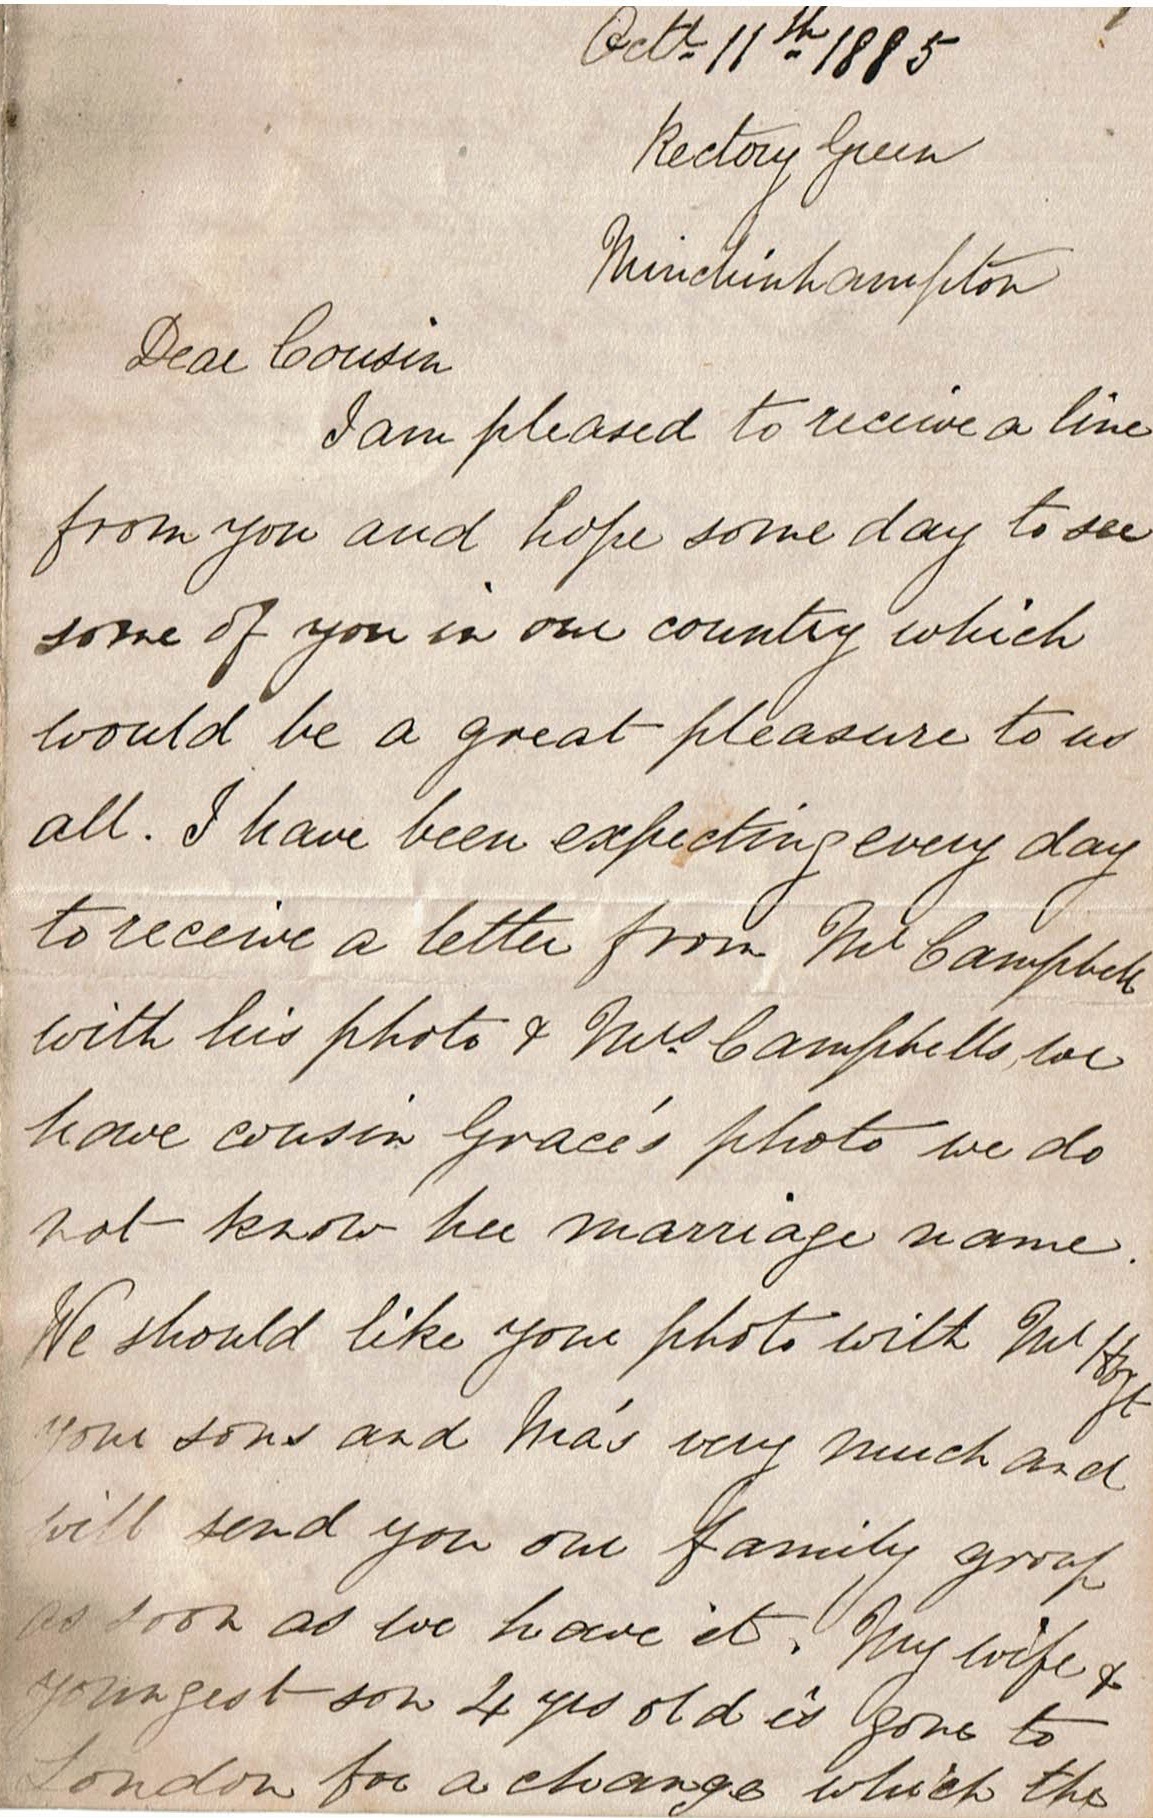 Octr 11th 1885
Rectory Green
Minchinhampton
Dear Cousin
I am pleased to receive a line
from you and hope some day to see
some of you in our country which
would be a great pleasure to us
all. I have been expecting every day
to receive a letter from Mr Campbell
with his photo & Mrs. Campbells, we
have cousin Grace's photo we do
not know her marriage name.
We should like your photo with Mr Hoyt
your sons and Ma's very much and
will send you our family group
as soon as we have it. My wife &
youngest son 4 yrs old is gone to
London for a change which the